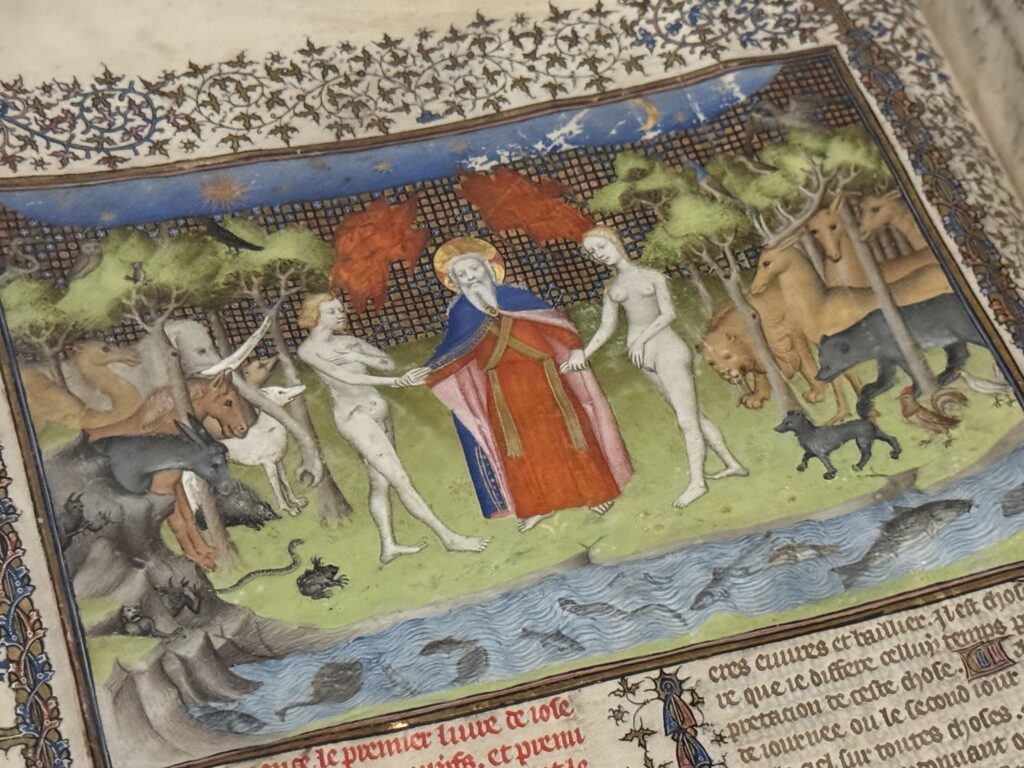 le premier liure de iose
et premi
le
eres euures et baillier. Il est
re que ie differe celluy temps
pretacion de ceste chose.
de iournee ou le second iour
sur toutes choses.